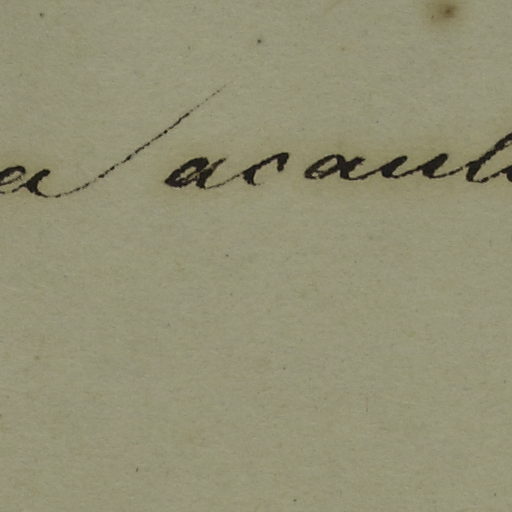 a acaul